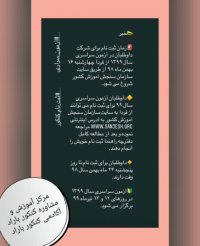 خبر
زمان ثبت نام برای شرکت
داوطلبان در آزمون سراسری
سال ۱۳۹۹ از فردا چهارشنبه ۱۶
بهمن ماه ۹۸ از طریق سایت
سازمان سنجش آموزش کشور
شروع می شود.
داوطلبان آزمون سراسری
سال ۹۹ برای ثبت نام می توانند
از فردا به سایت سازمان سنجش
آموزش کشور به آدرس اینترنتی
WWW.SANJESH.ORG مراجعه
نموده و بعد از مطالعه کامل
دفترچه راهنما ثبت نام خویش را
انجام دهند.
داوطلبان برای ثبت نام تا روز
پنجشنبه ۲۴ ماه بهمن ۹۸ فرصت
وقت دارند.
آزمون سراسری سال ۱۳۹۹
در روزهای ۱۲ و ۱۳ تیرماه ۹۹
برگزار می شود.
#آزمون_سراسری
#ثبت_نام_کنکور
مرکز آموزش و
مشاوره کنکور باراد
آکادمی کنکور باراد